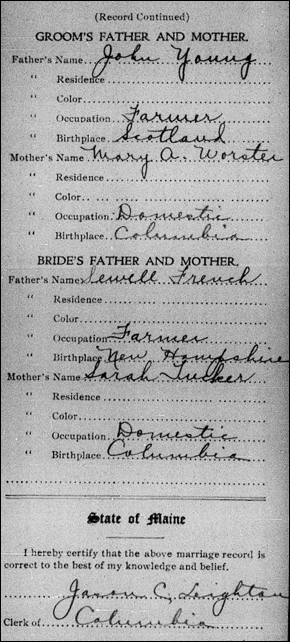 (Record Continued)
GROOM'S FATHER AND MOTHER.
Father's Name John Young
" Residence
" Color
" Occupation Farmer
" Birthplace Scotland
Mother's Name Mary A. Worster
" Residence
" Color
" Occupation Domestic
" Birthplace Columbia
BRIDE'S FATHER AND MOTHER.
Father's Name Jewell French
" Residence
" Color
" Occupation Farmer
" Birthplace New Hampshire
Mother's Name Sarah Tucker
" Residence
" Color
" Occupation Domestic
" Birthplace Columbia
State of Maine
I hereby certify that the above marriage record is
correct to the best of my knowledge and belief.
Jason C. Leighton
Clerk of Columbia